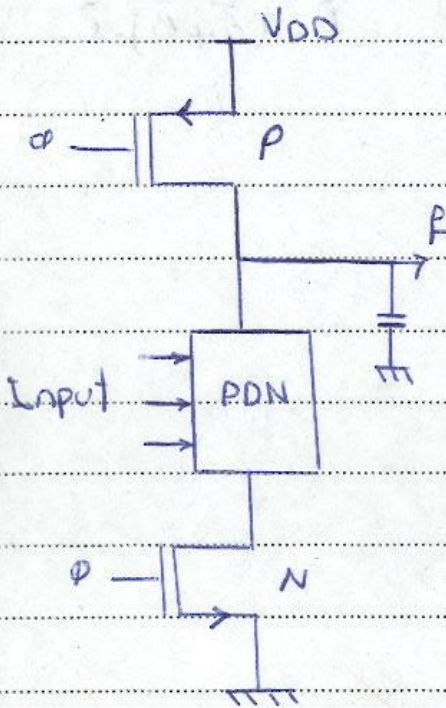 VDD
φ P
F
Input PDN
φ N